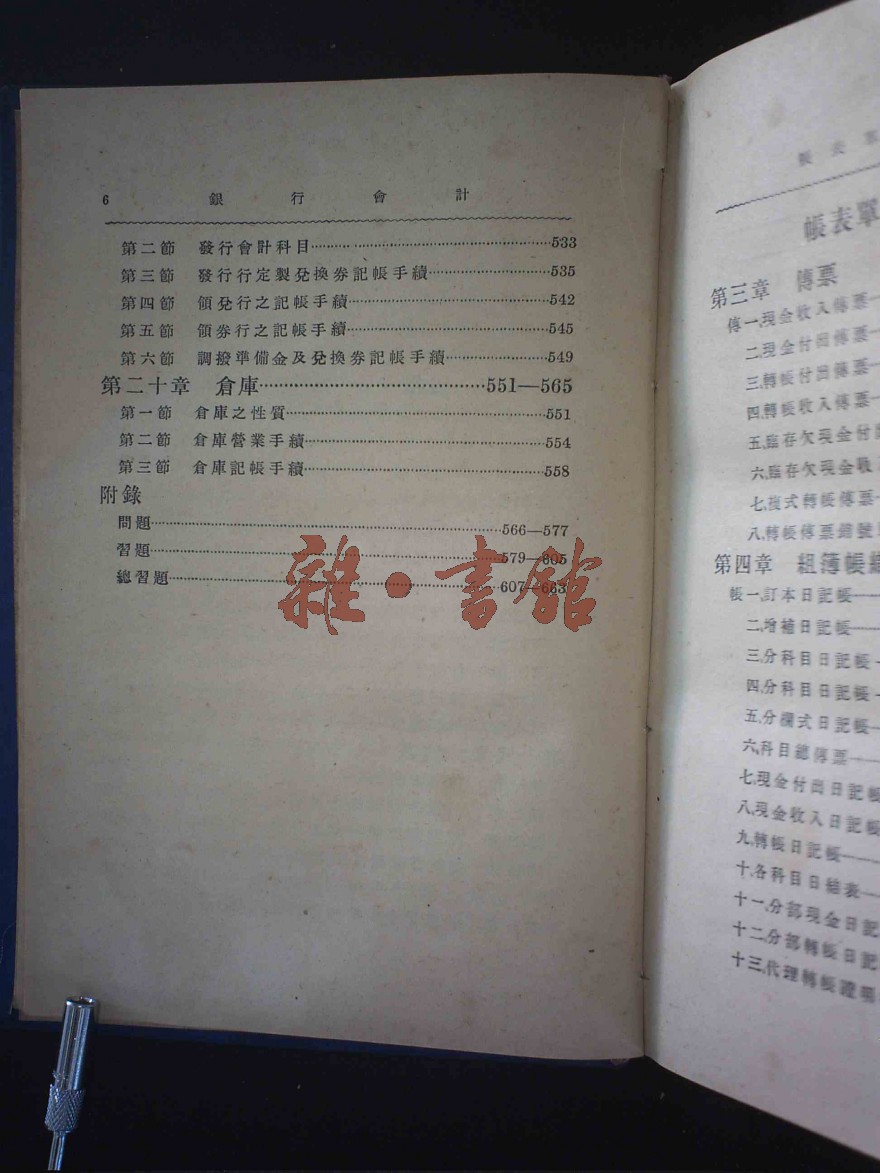 6 銀行會計
第二節 發行會計科目……533
第三節 發行行定製兌換券記帳手續……535
第四節 領兌行之記帳手續……542
第五節 領券行之記帳手續……545
第六節 調撥準備金及兌換券記帳手續……549
第二十章 倉庫……551—565
第一節 倉庫之性質……551
第二節 倉庫營業手續……554
第三節 倉庫記帳手續……558
附錄
問題……566—577
習題……579—605
總習題……607—663
雜·書館
帳表單
帳表單
第三章 傳票
傳一,現金收入傳票
二,現金付出傳票
三,轉帳付出傳票
四,轉帳收入傳票
五,臨存欠現金付出
六,臨存欠現金收
七,複式轉帳傳票
八,轉帳傳票銷號
第四章 組簿帳
帳一,訂本日記帳
二,增補日記帳
三,分科目日記帳
四,分科目日記帳
五,分欄式日記帳
六,科目總傳票
七,現金付出日記帳
八,現金收入日記帳
九,轉帳日記帳
十,各科目日結表
十一,分部現金日記
十二,分部轉帳日記
十三,代理轉帳證明